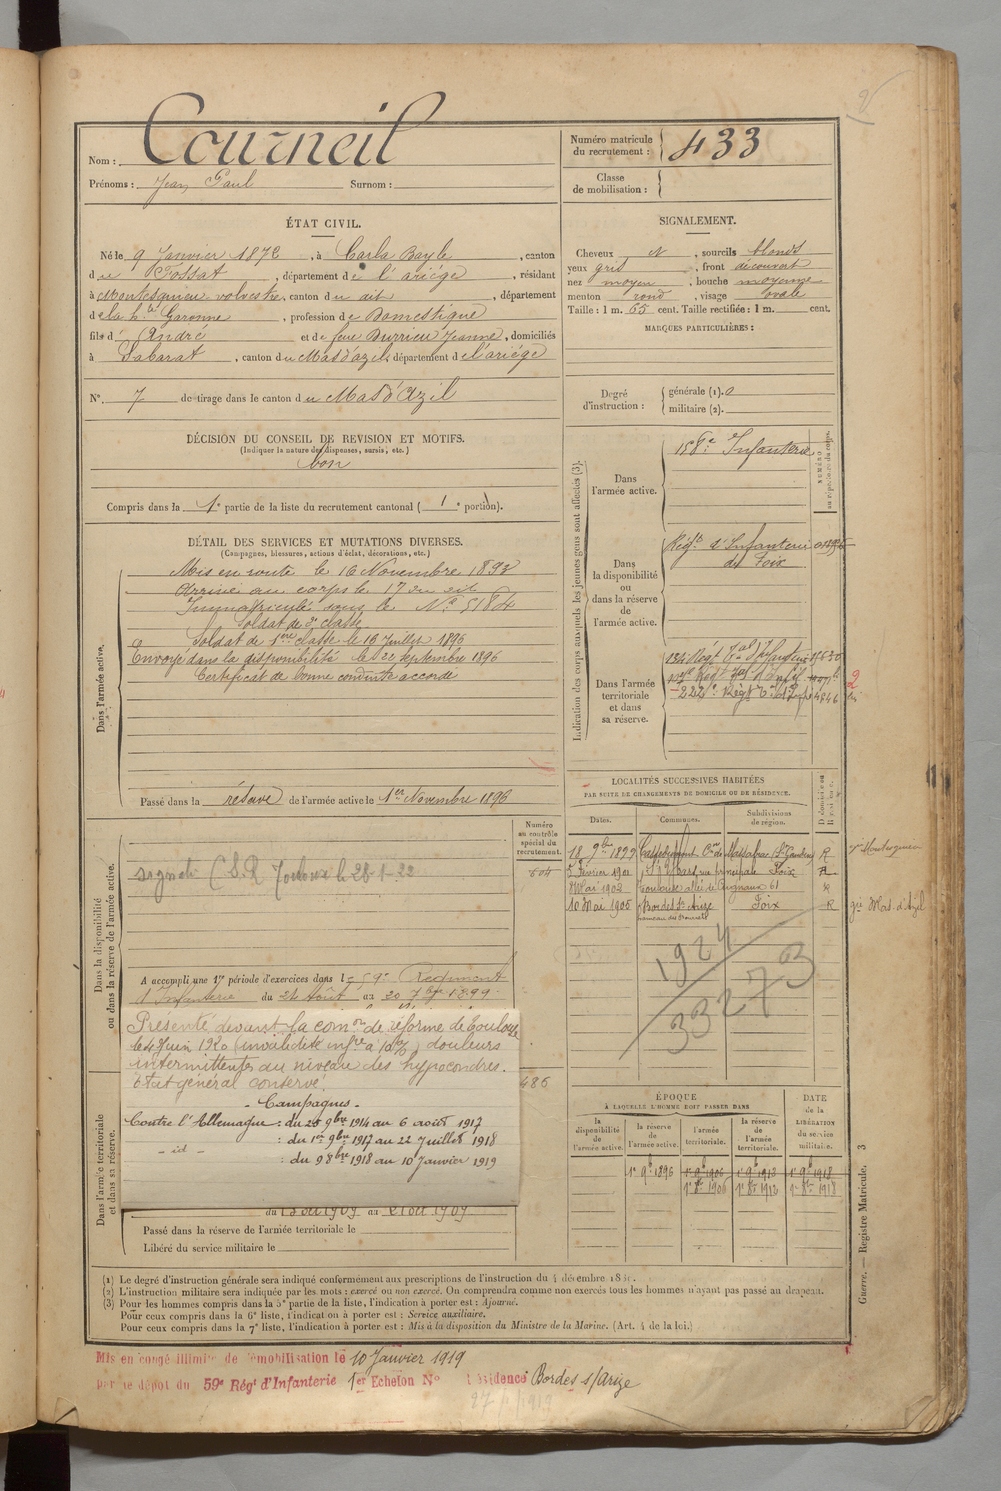 Nom : Courneil
Prénoms : Jean Paul Surnom :
Numéro matricule du recrutement : 433
Classe de mobilisation :
ÉTAT CIVIL.
Né le 9 Janvier 1872, à Carla Bayle, canton
de Fossat, département de l'ariège, résidant
à Montesquieu volvestre, canton du dit, département
de la hte Garonne, profession de Domestique
fils d'André et de feue Durrieu Jeanne, domiciliés
à Sabarat, canton du Mas d'azil, département de l'ariège
N° 7 de tirage dans le canton du Mas d'Azil
SIGNALEMENT.
Cheveux N, sourcils blonds
yeux gris, front découvert
nez moyen, bouche moyenne
menton rond, visage ovale
Taille : 1 m. 65 cent. Taille rectifiée : 1 m. cent.
MARQUES PARTICULIÈRES :
Degré d'instruction : générale (1). 0
militaire (2).
DÉCISION DU CONSEIL DE REVISION ET MOTIFS.
(Indiquer la nature des dispenses, sursis, etc.)
bon
Compris dans la 1e partie de la liste du recrutement cantonal ( 1e portion).
DÉTAIL DES SERVICES ET MUTATIONS DIVERSES.
(Campagnes, blessures, actions d'éclat, décorations, etc.)
Dans l'armée active.
Mis en route le 16 Novembre 1893
Arrivé au corps le 17 du dit
Immatriculé sous le N° 5184
Soldat de 2e classe
Soldat de 1ère classe le 16 Juillet 1896
Envoyé dans la disponibilité le 22 septembre 1896
Certificat de bonne conduite accordé
Passé dans la réserve de l'armée active le 1er Novembre 1896
Indication des corps auxquels les jeunes gens sont affectés (3).
NUMÉRO au répertoire du corps.
Dans l'armée active.
158e Infanterie
Dans la disponibilité ou dans la réserve de l'armée active.
Régt d'Infanterie
de Foix
Dans l'armée territoriale et dans sa réserve.
134 Régt Tal d'Infanterie
2
LOCALITÉS SUCCESSIVES HABITÉES
PAR SUITE DE CHANGEMENTS DE DOMICILE OU DE RÉSIDENCE.
Dates. Communes. Subdivisions de région.
18 9bre 1899 St Gaudens R
3 Février 1901 rue principale Foix R
8 Mai 1902 Toulouse allée 61 R
10 Mai 1905 Bordes St Arize Foix R
Mas d'Azil
1924
3273
Dans la disponibilité ou dans la réserve de l'armée active.
Numéro au contrôle spécial du recrutement.
604
C.S.R Toulouse le 28-1-22
A accompli une 1re période d'exercices dans le 59e Régiment
d'Infanterie du 24 Août au 20 7bre 1899
Présenté devant la comon de réforme de Toulouse
le 4 Juin 1920 (invalidité infre à 10%) douleurs
intermittentes au niveau des hypocondres.
État général conservé.
486
- Campagnes -
Contre l'Allemagne : du 25 9bre 1914 au 6 août 1917
- id - : du 1er 9bre 1917 au 22 Juillet 1918
: du 9 8bre 1918 au 10 Janvier 1919
Dans l'armée territoriale et dans sa réserve.
au 21 oct 1909
Passé dans la réserve de l'armée territoriale le
Libéré du service militaire le
ÉPOQUE
À LAQUELLE L'HOMME DOIT PASSER DANS
DATE de la LIBÉRATION du service militaire.
la disponibilité de l'armée active. la réserve de l'armée active. l'armée territoriale. la réserve de l'armée territoriale.
1er 9b 1896 1er 9b 1906 1er 9b 1912 1er 9b 1918
1er 8b 1906 1er 8b 1912 1er 8b 1918
Guerre. — Registre Matricule. 3
(1) Le degré d'instruction générale sera indiqué conformément aux prescriptions de l'instruction du 4 décembre
(2) L'instruction militaire sera indiquée par les mots : exercé ou non exercé. On comprendra comme non exercés tous les hommes n'ayant pas passé au drapeau.
(3) Pour les hommes compris dans la 5e partie de la liste, l'indication à porter est : Ajourné.
Pour ceux compris dans la 6e liste, l'indication à porter est : Service auxiliaire.
Pour ceux compris dans la 7e liste, l'indication à porter est : Mis à la disposition du Ministre de la Marine. (Art. 4 de la loi.)
Mis en congé illimité de démobilisation le 10 Janvier 1919
par le dépôt du 59e Régt d'Infanterie 1er Echelon N° Résidence Bordes s/Arize